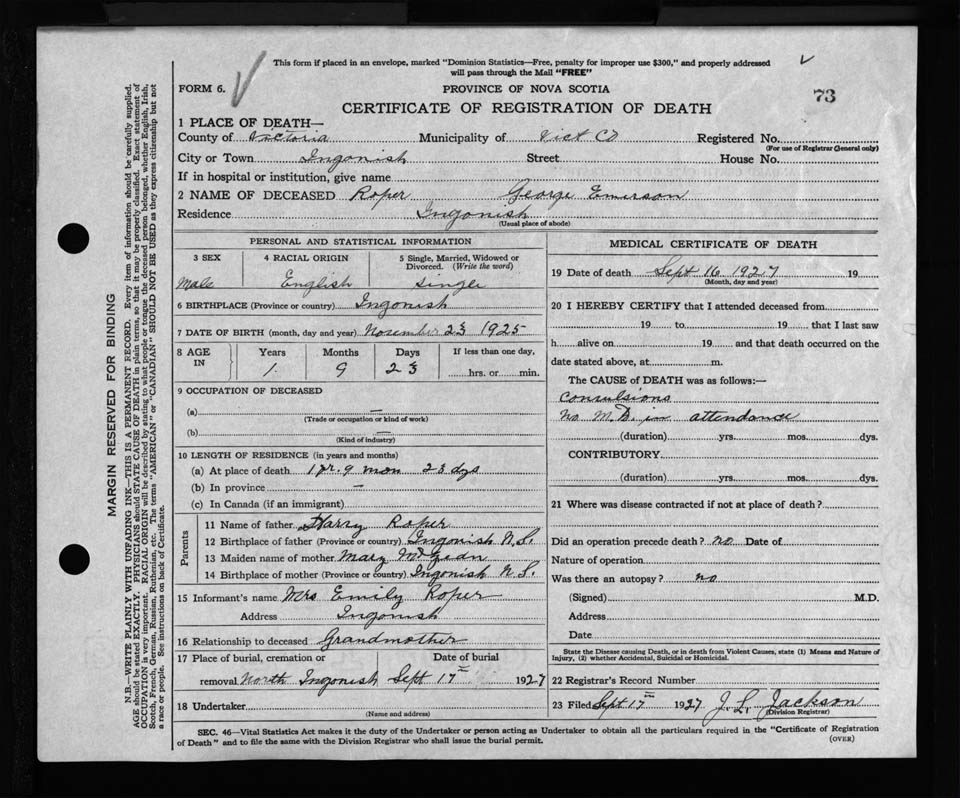 This form if placed in an envelope, marked "Dominion Statistics—Free, penalty for improper use $300," and properly addressed
will pass through the Mail "FREE"
FORM 6.
PROVINCE OF NOVA SCOTIA
73
CERTIFICATE OF REGISTRATION OF DEATH
1 PLACE OF DEATH—
County of Victoria Municipality of Vict Co Registered No.
(For use of Registrar General only)
City or Town Ingonish Street House No.
If in hospital or institution, give name
2 NAME OF DECEASED Roper George Emerson
Residence Ingonish
(Usual place of abode)
PERSONAL AND STATISTICAL INFORMATION
3 SEX 4 RACIAL ORIGIN 5 Single, Married, Widowed or
Divorced. (Write the word)
Male English Single
6 BIRTHPLACE (Province or country) Ingonish
7 DATE OF BIRTH (month, day and year) November 23 1925
8 AGE IN Years Months Days If less than one day,
1 9 23 hrs. or min.
9 OCCUPATION OF DECEASED
(a) —
(Trade or occupation or kind of work)
(b) —
(Kind of industry)
10 LENGTH OF RESIDENCE (in years and months)
(a) At place of death 1 yr. 9 mon 23 dys
(b) In province —
(c) In Canada (if an immigrant)
Parents
11 Name of father Harry Roper
12 Birthplace of father (Province or country) Ingonish N.S.
13 Maiden name of mother Mary
14 Birthplace of mother (Province or country) Ingonish N.S.
15 Informant's name Mrs Emily Roper
Address Ingonish
16 Relationship to deceased Grandmother
17 Place of burial, cremation or Date of burial
removal North Ingonish Sept 17th 1927
18 Undertaker
(Name and address)
MEDICAL CERTIFICATE OF DEATH
19 Date of death Sept 16 1927 19
(Month, day and year)
20 I HEREBY CERTIFY that I attended deceased from
19 to 19 that I last saw
h alive on 19 and that death occurred on the
date stated above, at m.
The CAUSE of DEATH was as follows:—
Convulsions
No M.D. in attendance
(duration) yrs. mos. dys.
CONTRIBUTORY
(duration) yrs. mos. dys.
21 Where was disease contracted if not at place of death?
Did an operation precede death? no Date of
Nature of operation
Was there an autopsy? no
(Signed) M.D.
Address
Date
State the Disease causing Death, or in death from Violent Causes, state (1) Means and Nature of
Injury, (2) whether Accidental, Suicidal or Homicidal.
22 Registrar's Record Number
23 Filed Sept 17th 1927 J. L. Jackson
(Division Registrar)
SEC. 46—Vital Statistics Act makes it the duty of the Undertaker or person acting as Undertaker to obtain all the particulars required in the "Certificate of Registration
of Death" and to file the same with the Division Registrar who shall issue the burial permit.
(OVER)
MARGIN RESERVED FOR BINDING
N.B.—WRITE PLAINLY WITH UNFADING INK—THIS IS A PERMANENT RECORD. Every item of information should be carefully supplied.
AGE should be stated EXACTLY. PHYSICIANS should STATE CAUSE OF DEATH in plain terms, so that it may be properly classified. Exact statement of
OCCUPATION is very important. RACIAL ORIGIN will be described by stating to what people or tongue the deceased person belonged, whether English, Irish,
Scotch, French, German, Russian, Ruthenian, etc. The terms "AMERICAN" or "CANADIAN" SHOULD NOT BE USED as they express citizenship but not
a race or people. See instructions on back of Certificate.